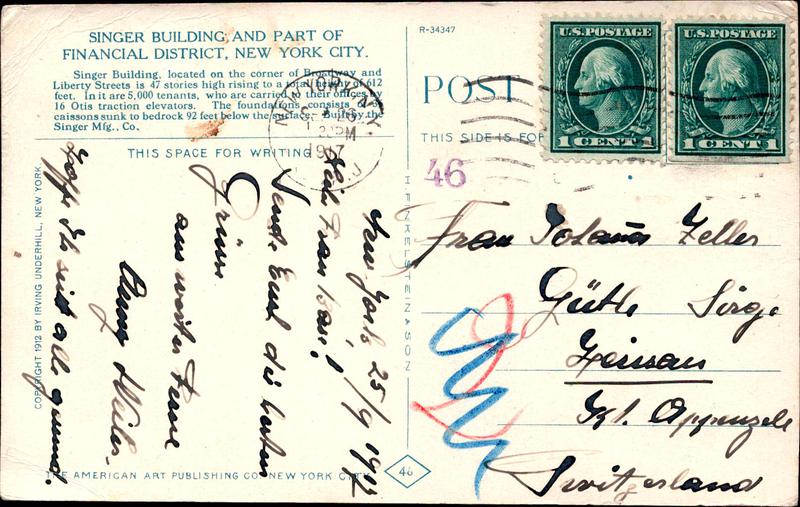 SINGER BUILDING, AND PART OF
FINANCIAL DISTRICT, NEW YORK CITY.
Singer Building, located on the corner of Broadway and
Liberty Streets is 47 stories high rising to a total height of 612
feet. In it are 5,000 tenants, who are carried to their offices by
16 Otis traction elevators. The foundations consists of 36
caissons sunk to bedrock 92 feet below the surface. Built by the
Singer Mfg., Co.
THIS SPACE FOR WRITING
New York 25/9 1917
Frau
Sende Euch die besten
Grüsse
aus weiter Ferne
Hoffe Ihr seit alle gesund.
COPYRIGHT 1912 BY IRVING UNDERHILL, NEW YORK
THE AMERICAN ART PUBLISHING CO. NEW YORK CITY
H. FINKELSTEIN & SON
46
R-34347
POST
THIS SIDE IS FOR
46
U.S. POSTAGE
1 CENT 1
U.S. POSTAGE
1 CENT 1
NEW YORK, N.Y.
PM
1917
Frau Johanns Zeller
Gütle
Kt. Appenzell
Switzerland